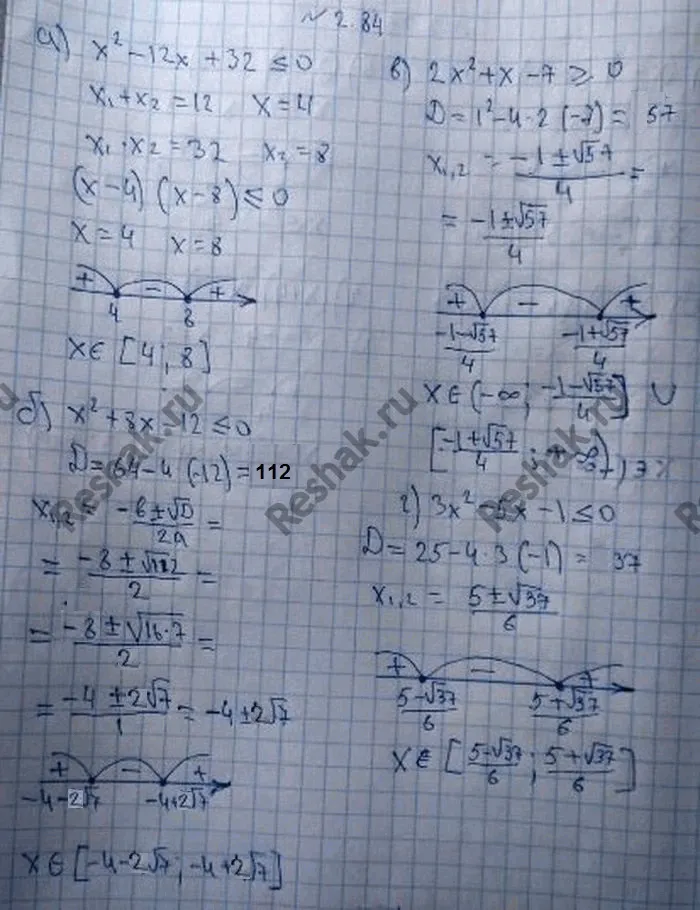 № 2.84
а) x² − 12x + 32 ≤ 0
x₁ + x₂ = 12 x = 4
x₁ · x₂ = 32 x₂ = 8
(x − 4) (x − 8) ≤ 0
x = 4 x = 8
+ − +
4 8
x ∈ [4; 8]
б) x² + 8x − 12 ≤ 0
D = 64 − 4 (−12) = 112
x₁,₂ = −b ± √D / 2a =
= −8 ± √112 / 2 =
= −8 ± √16·7 / 2 =
= −4 ± 2√7 / 1 = −4 ± 2√7
+ − +
−4 − 2√7 −4 + 2√7
x ∈ [−4 − 2√7; −4 + 2√7]
в) 2x² + x − 7 ≥ 0
D = 1² − 4 · 2 (−7) = 57
x₁,₂ = −1 ± √57 / 4 =
= −1 ± √57 / 4
+ − +
−1 − √57 / 4 −1 + √57 / 4
x ∈ (−∞; −1 − √57 / 4] ∪
[−1 + √57 / 4; +∞)
г) 3x² − 5x − 1 ≤ 0
D = 25 − 4 · 3 (−1) = 37
x₁,₂ = 5 ± √37 / 6
+ − +
5 − √37 / 6 5 + √37 / 6
x ∈ [5 − √37 / 6; 5 + √37 / 6]
Reshak.ru
Reshak.ru
Reshak.ru